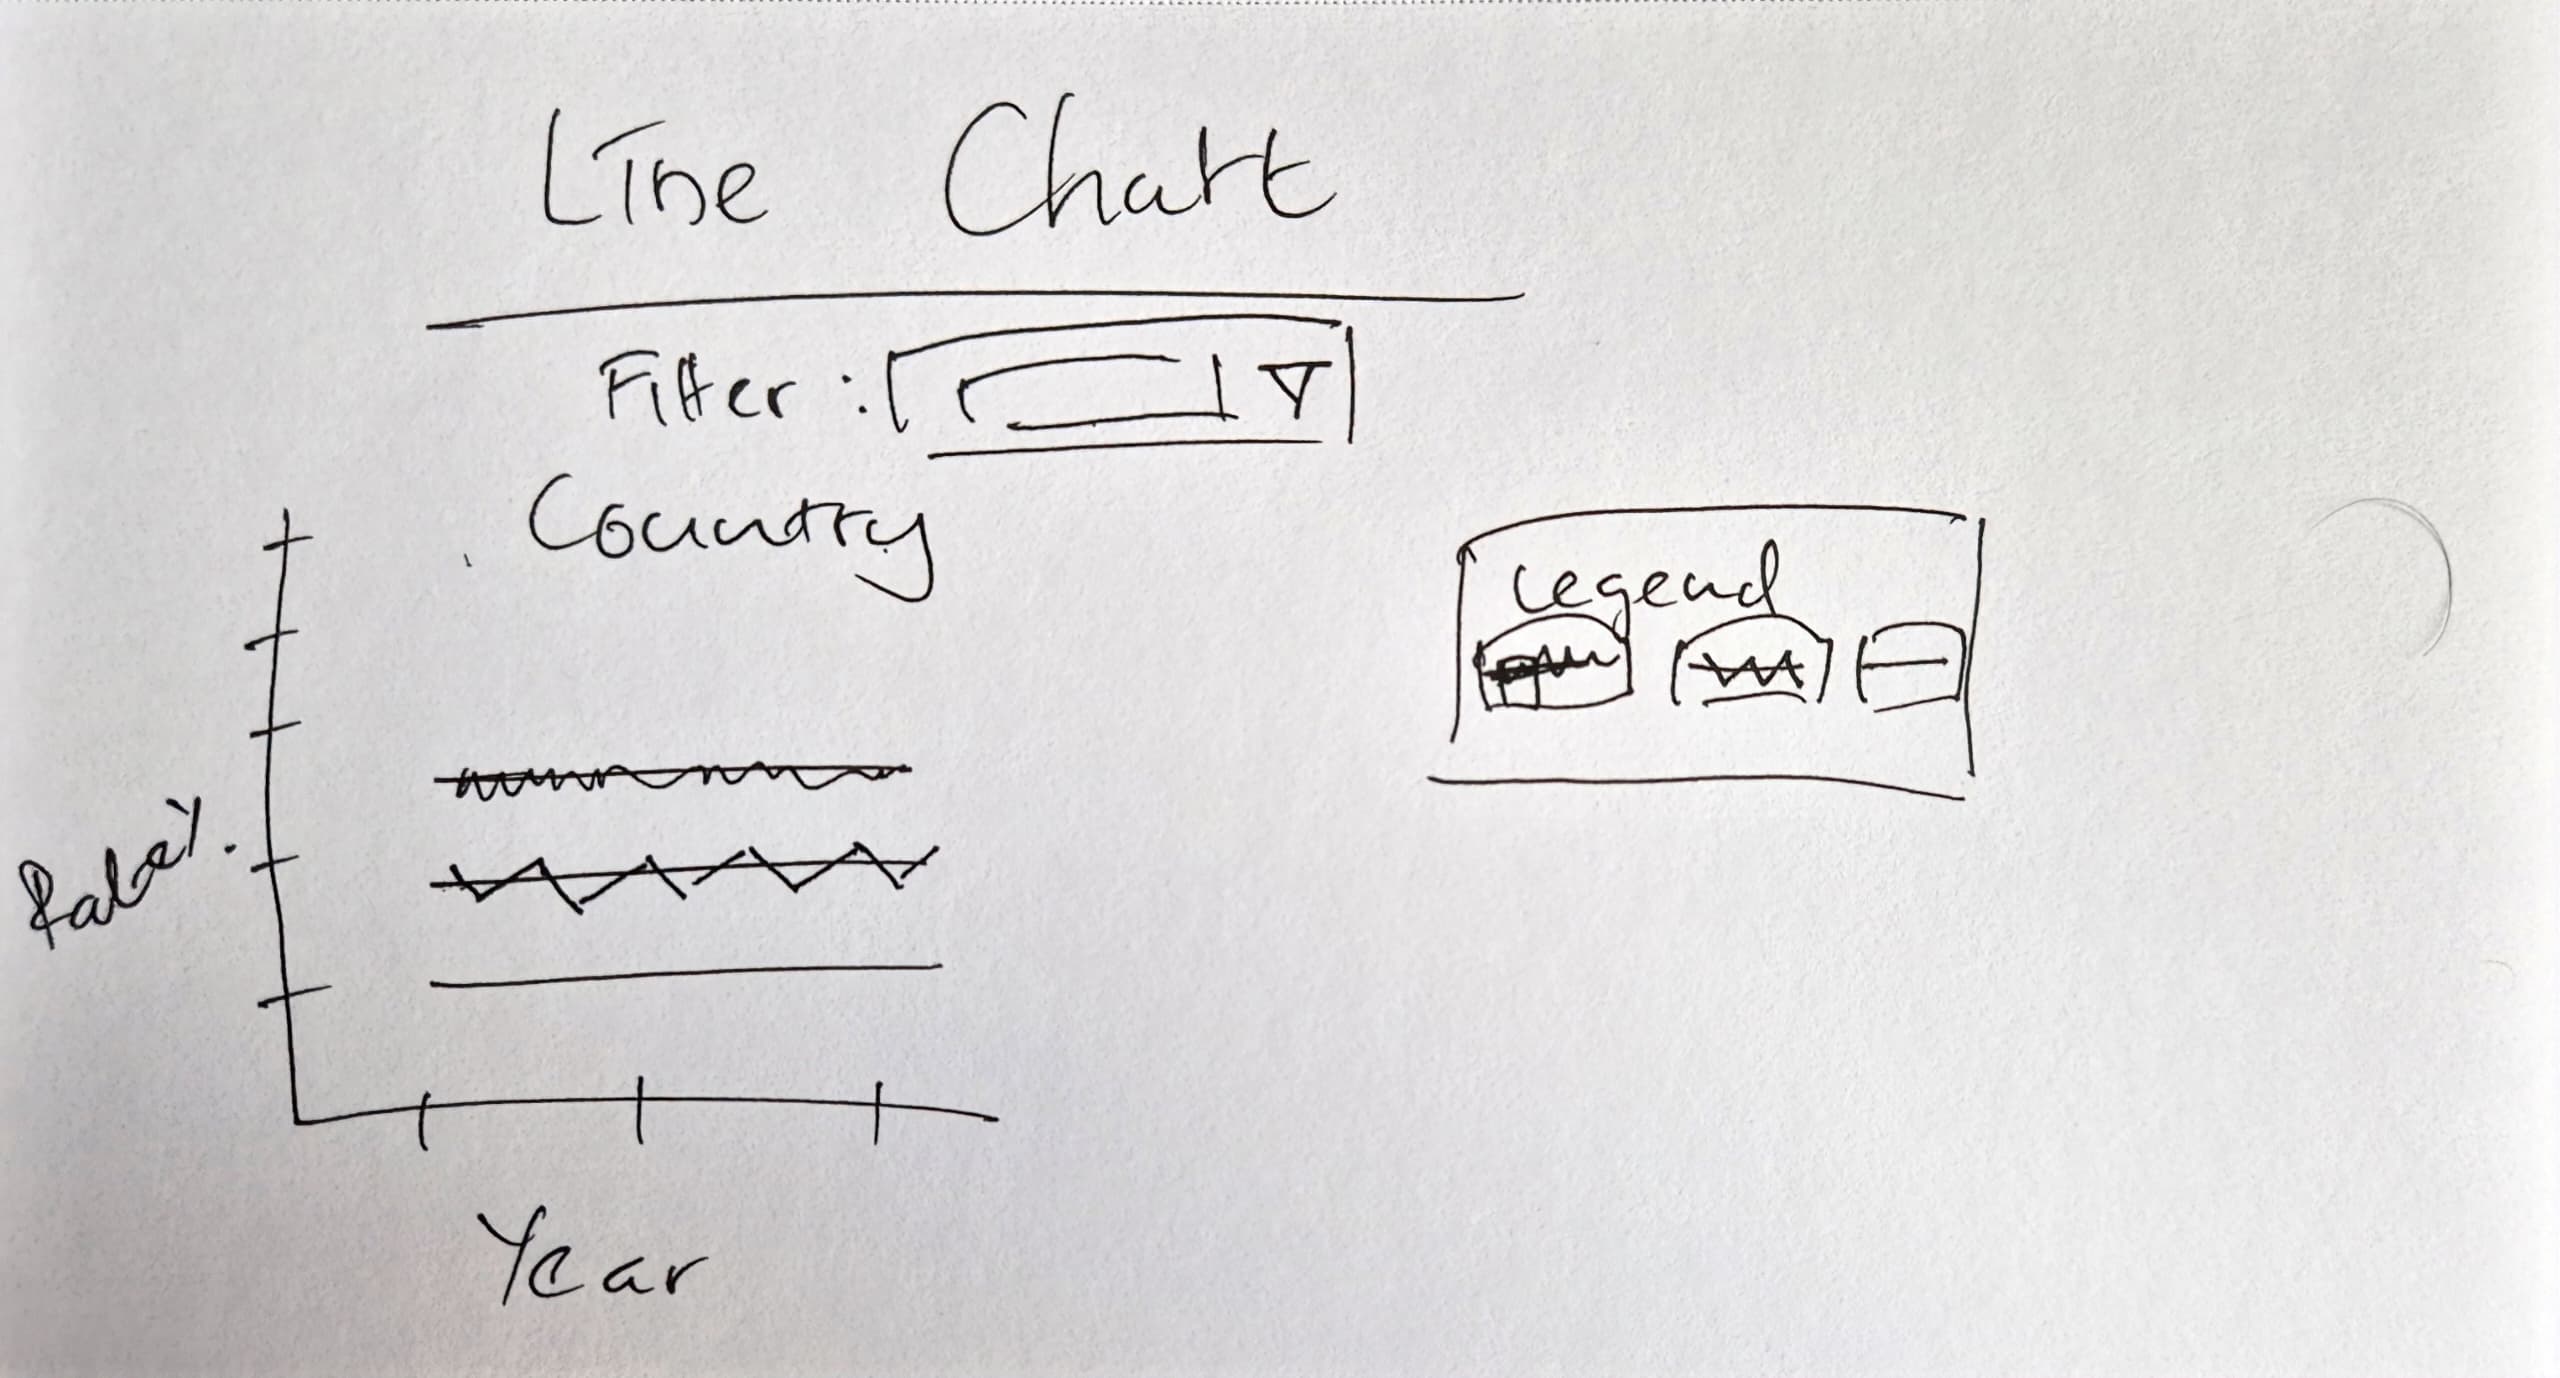 Line Chart
Filter :
Country
Legend
Rate%
Year